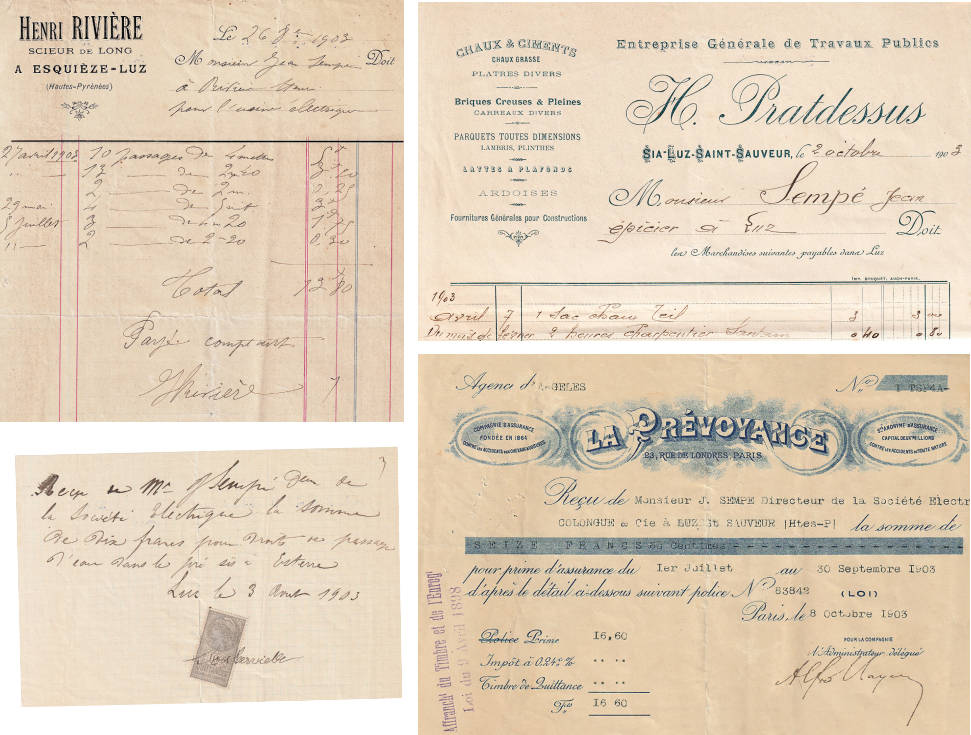 HENRI RIVIÈRE
SCIEUR DE LONG
A ESQUIÈZE-LUZ
(Hautes-Pyrénées)
Le 26 8bre 1903
Monsieur Jean Sempé Doit
à Rivière Henri
pour l'usine électrique
27 avril 1903 10 passages de
de 2-20
2 de 2 m.
29 mai
5 Juillet 3
2 de 2-20 0,30
Total 12 80
Payé comptant
HRivière
CHAUX & CIMENTS
CHAUX GRASSE
PLATRES DIVERS
Briques Creuses & Pleines
CARREAUX DIVERS
PARQUETS TOUTES DIMENSIONS
LAMBRIS, PLINTHES
LATTES A PLAFONDS
ARDOISES
Fournitures Générales pour Constructions
Entreprise Générale de Travaux Publics
H. Pratdessus
SIA-LUZ-SAINT-SAUVEUR, le 2 octobre 1903
Monsieur Sempé Jean
épicier à Luz Doit
les Marchandises suivantes payables dans Luz
IMP. BOUQUET, AUCH-PARIS.
1903
avril 7 1 sac chaux Teil 3 3
2 heures charpentier 0 40 0 80
Reçu de Mr Sempé Jean de
la Société Electrique la somme
de dix francs pour droits de passage
d'eau dans le pré sis à Esterre
Luz le 3 1903
Agence d'ARGELES No
COMPAGNIE D'ASSURANCE
FONDÉE EN 1864
LA PRÉVOYANCE
23, RUE DE LONDRES, PARIS
Sté ANONYME D'ASSURANCE
CAPITAL DEUX MILLIONS
CONTRE LES ACCIDENTS DE TOUTE NATURE
Reçu de Monsieur J. SEMPE Directeur de la Société Electr
COLONGUE & Cie à LUZ St SAUVEUR |Htes-P| la somme de
SEIZE FRANCS 60 Centimes
pour prime d'assurance du 1er Juillet au 30 Septembre 1903
d'après le détail ci-dessous suivant police No 63842 (LOI)
Paris, le 8 Octobre 1903
Police Prime 16,60
Impôt à 0.24c %
Timbre de Quittance
Frs 16 60
POUR LA COMPAGNIE
L'Administrateur délégué
Affranchi du Timbre et de l'Enregt
Loi du 9 Avril 1898